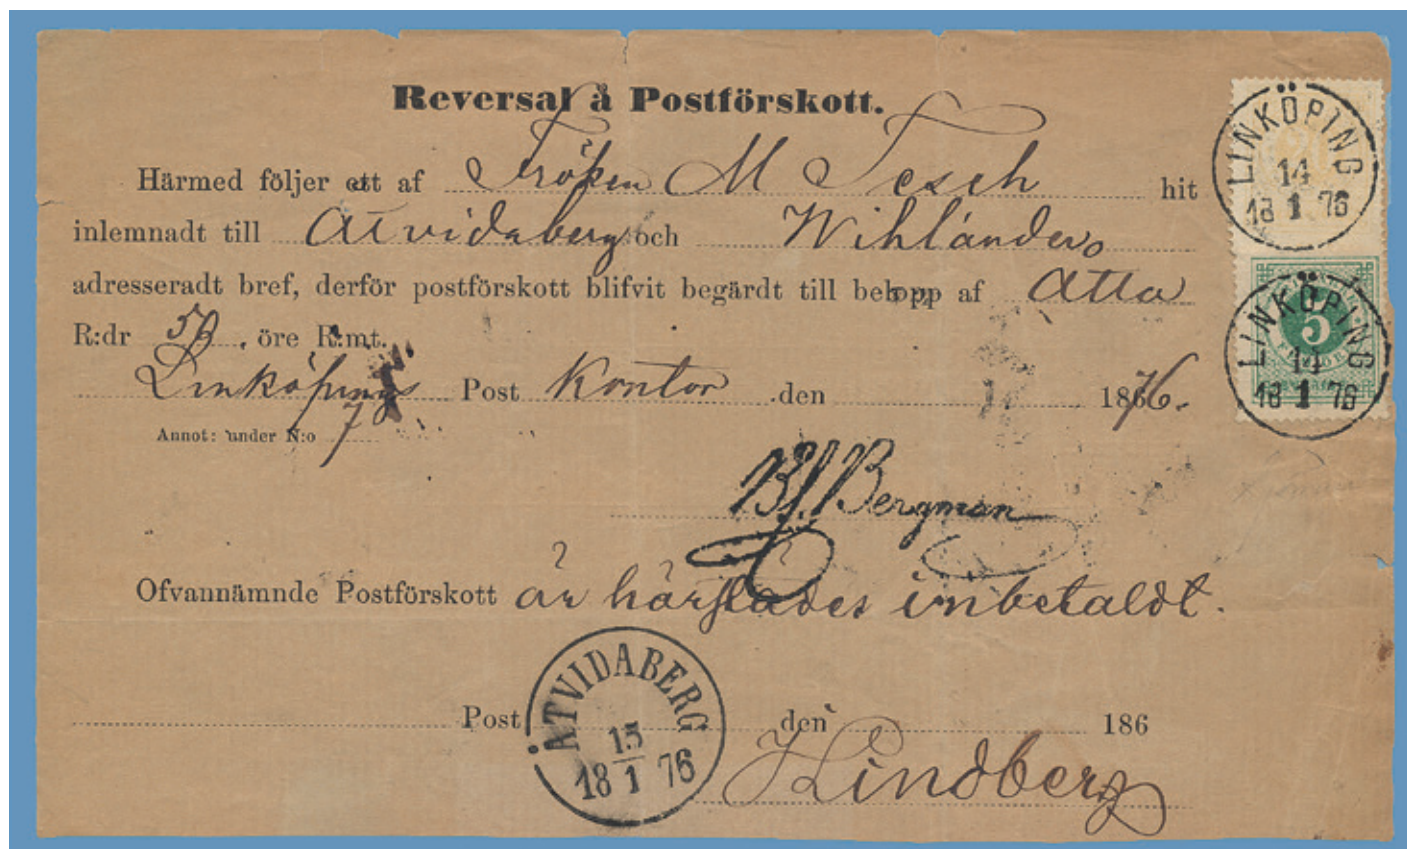 Reversal å Postförskott.
Härmed följer ett af Fröken M Tesch hit
inlemnadt till Atvidaberg och Wihlander
adresseradt bref, derför postförskott blifvit begärdt till belopp af Atta
R:dr 50 öre R:mt.
Linköpings Post Kontor den 1876.
Annot: under N:o 7
Bergman
Ofvannämnde Postförskott är härstädes inbetaldt.
Post den 186
Lindberg
LINKÖPING
14
18 1 76
5
LINKÖPING
14
18 1 76
ÅTVIDABERG
15
18 1 76